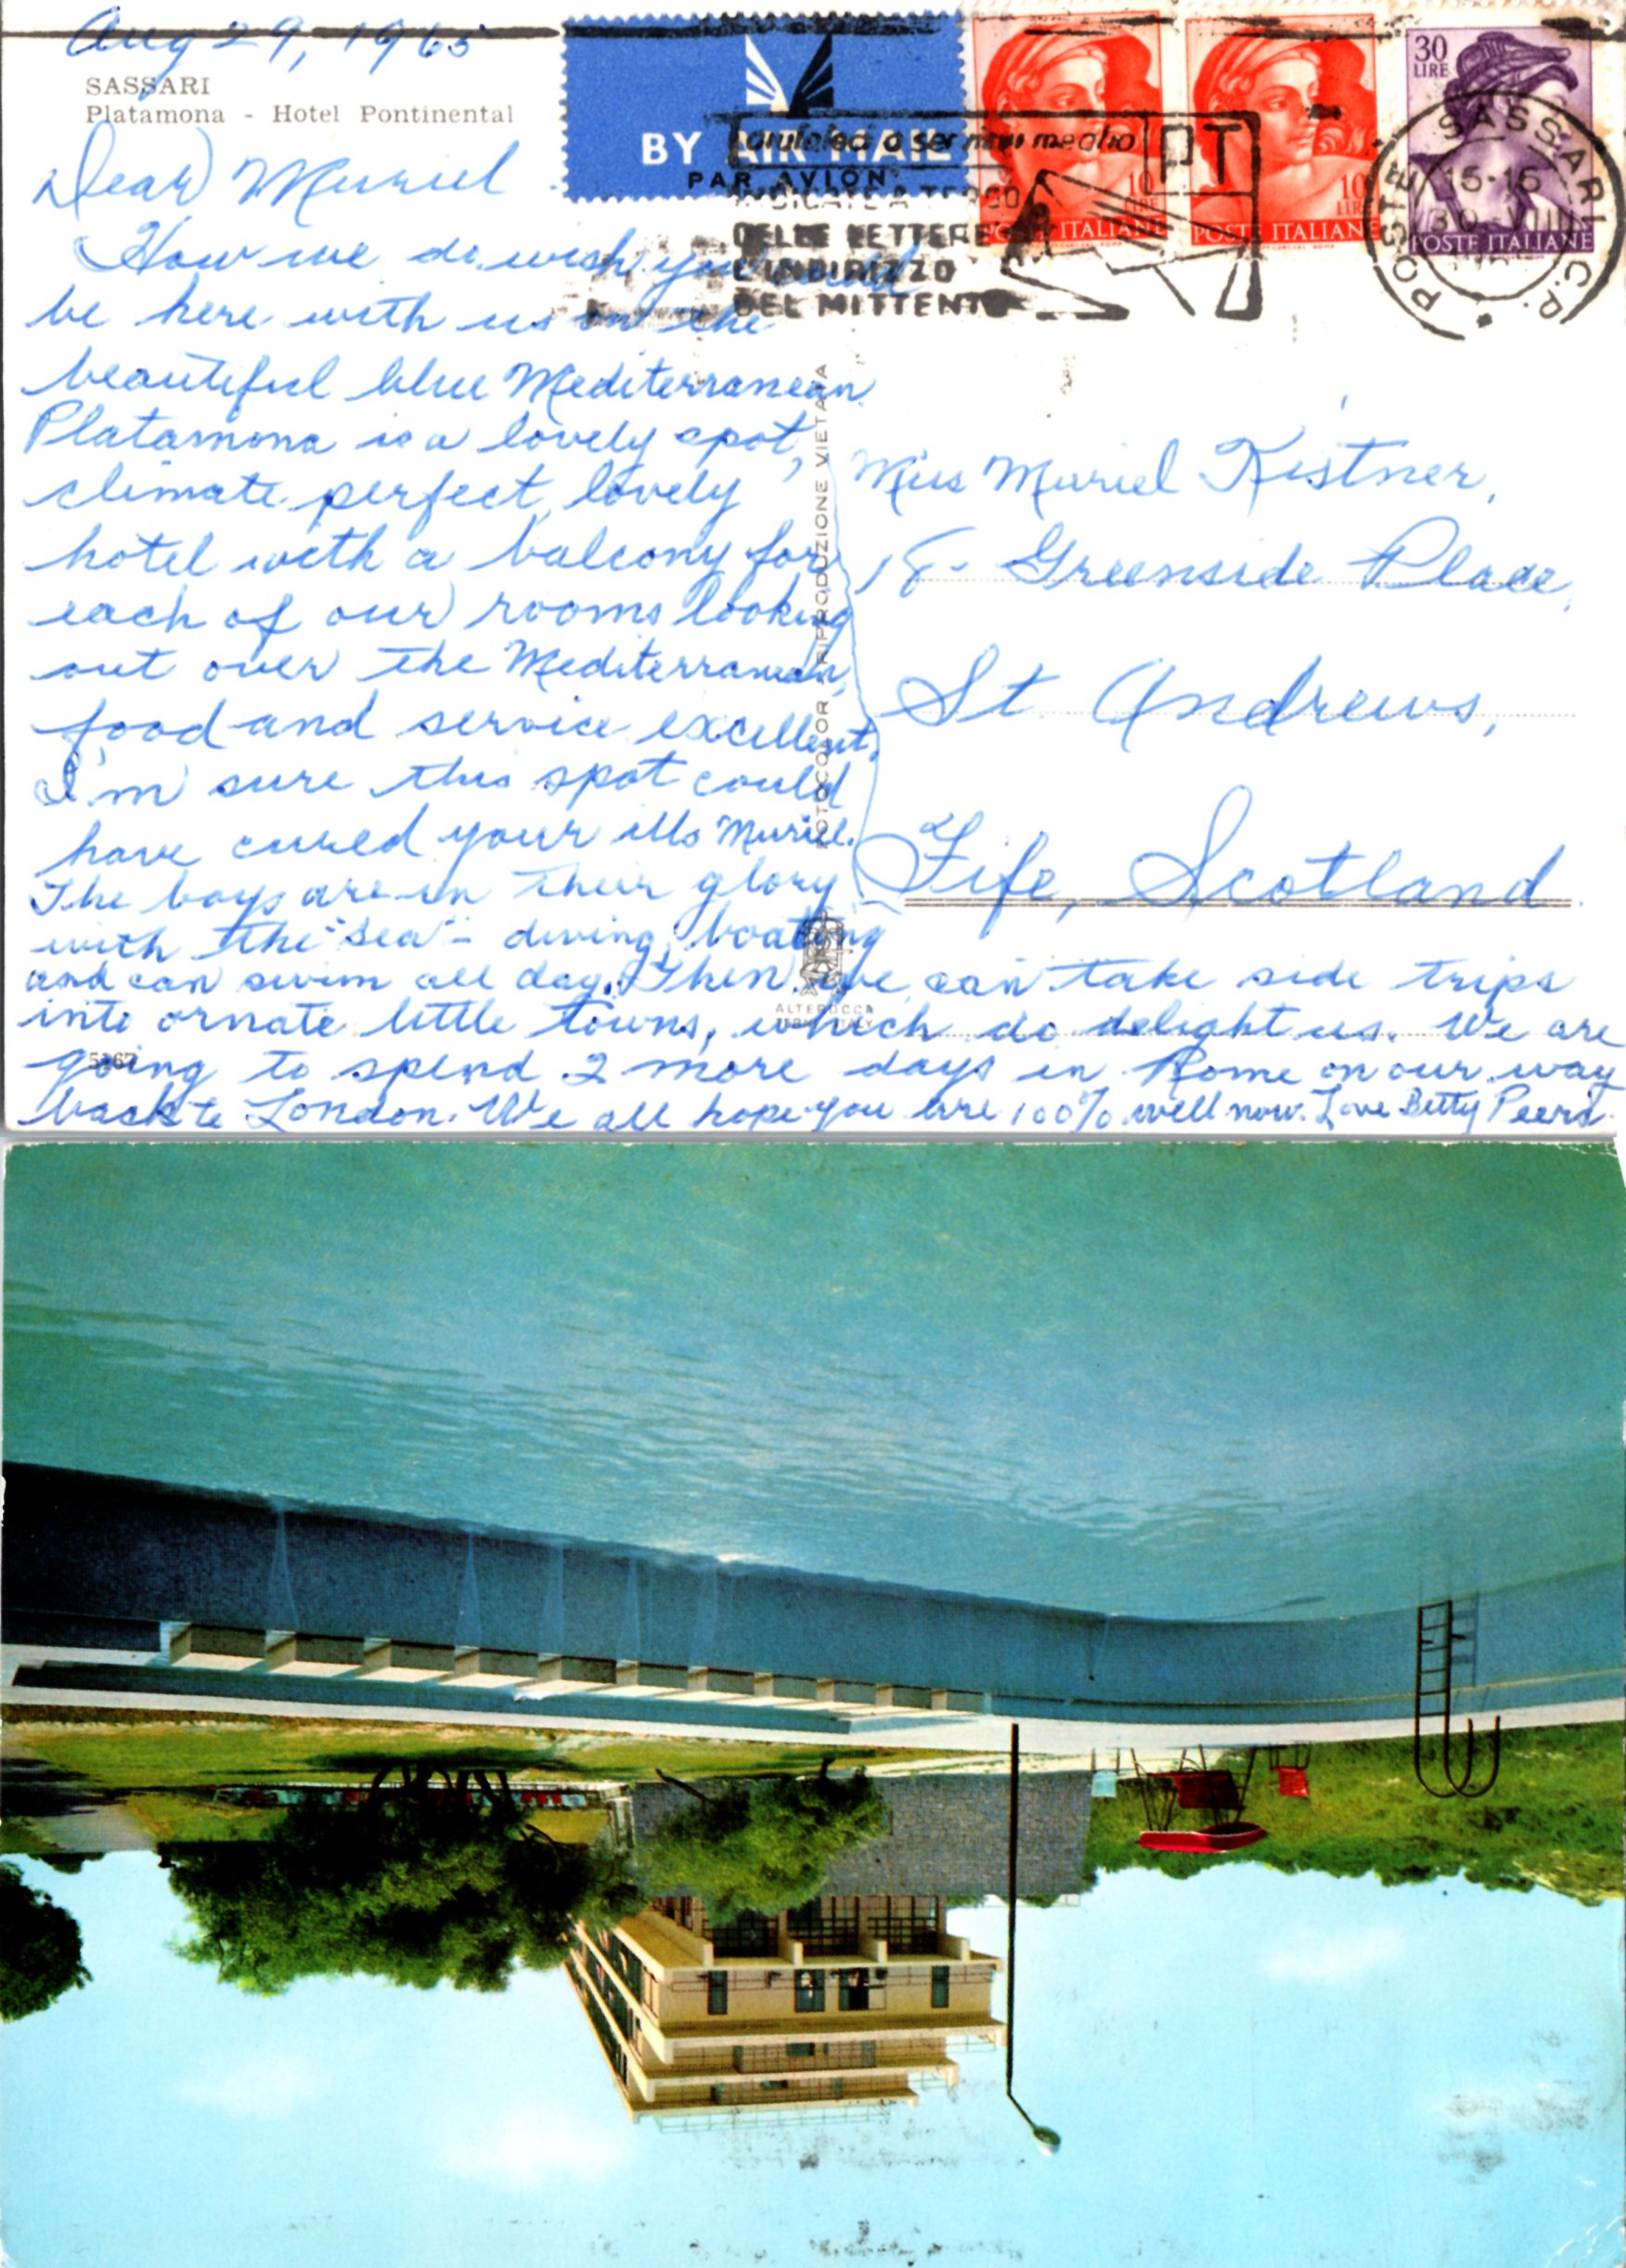 Aug 29, 1965
SASSARI
Platamona - Hotel Pontinental
BY AIR MAIL
PAR AVION
10
LIRE
POSTE ITALIANE
10
LIRE
POSTE ITALIANE
30
LIRE
POSTE ITALIANE
a servirvi meglio
PT
INDICATE A TERGO
DELLE LETTERE
L'INDIRIZZO
DEL MITTENTE
POSTE SASSARI C.P.
15-15
30-VIII
Dear Muriel
How we do wish you could
be here with us on the
beautiful blue Mediterranean
Platamona is a lovely spot,
climate perfect, lovely
hotel with a balcony for
each of our rooms looking
out over the Mediterranean,
food and service excellent,
I'm sure this spot could
have cured your ills Muriel.
The boys are in their glory
with the "sea" - diving, boating
and can swim all day. Then we can take side trips
into ornate little towns, which do delight us. We are
going to spend 2 more days in Rome on our way
back to London. We all hope you are 100% well now. Love Betty Peers.
FOTOCOLOR - RIPRODUZIONE VIETATA
ALTEROCCA
TERNI ITALY
5167
Miss Muriel Kistner,
18 - Greenside Place,
St. Andrews,
Fife, Scotland